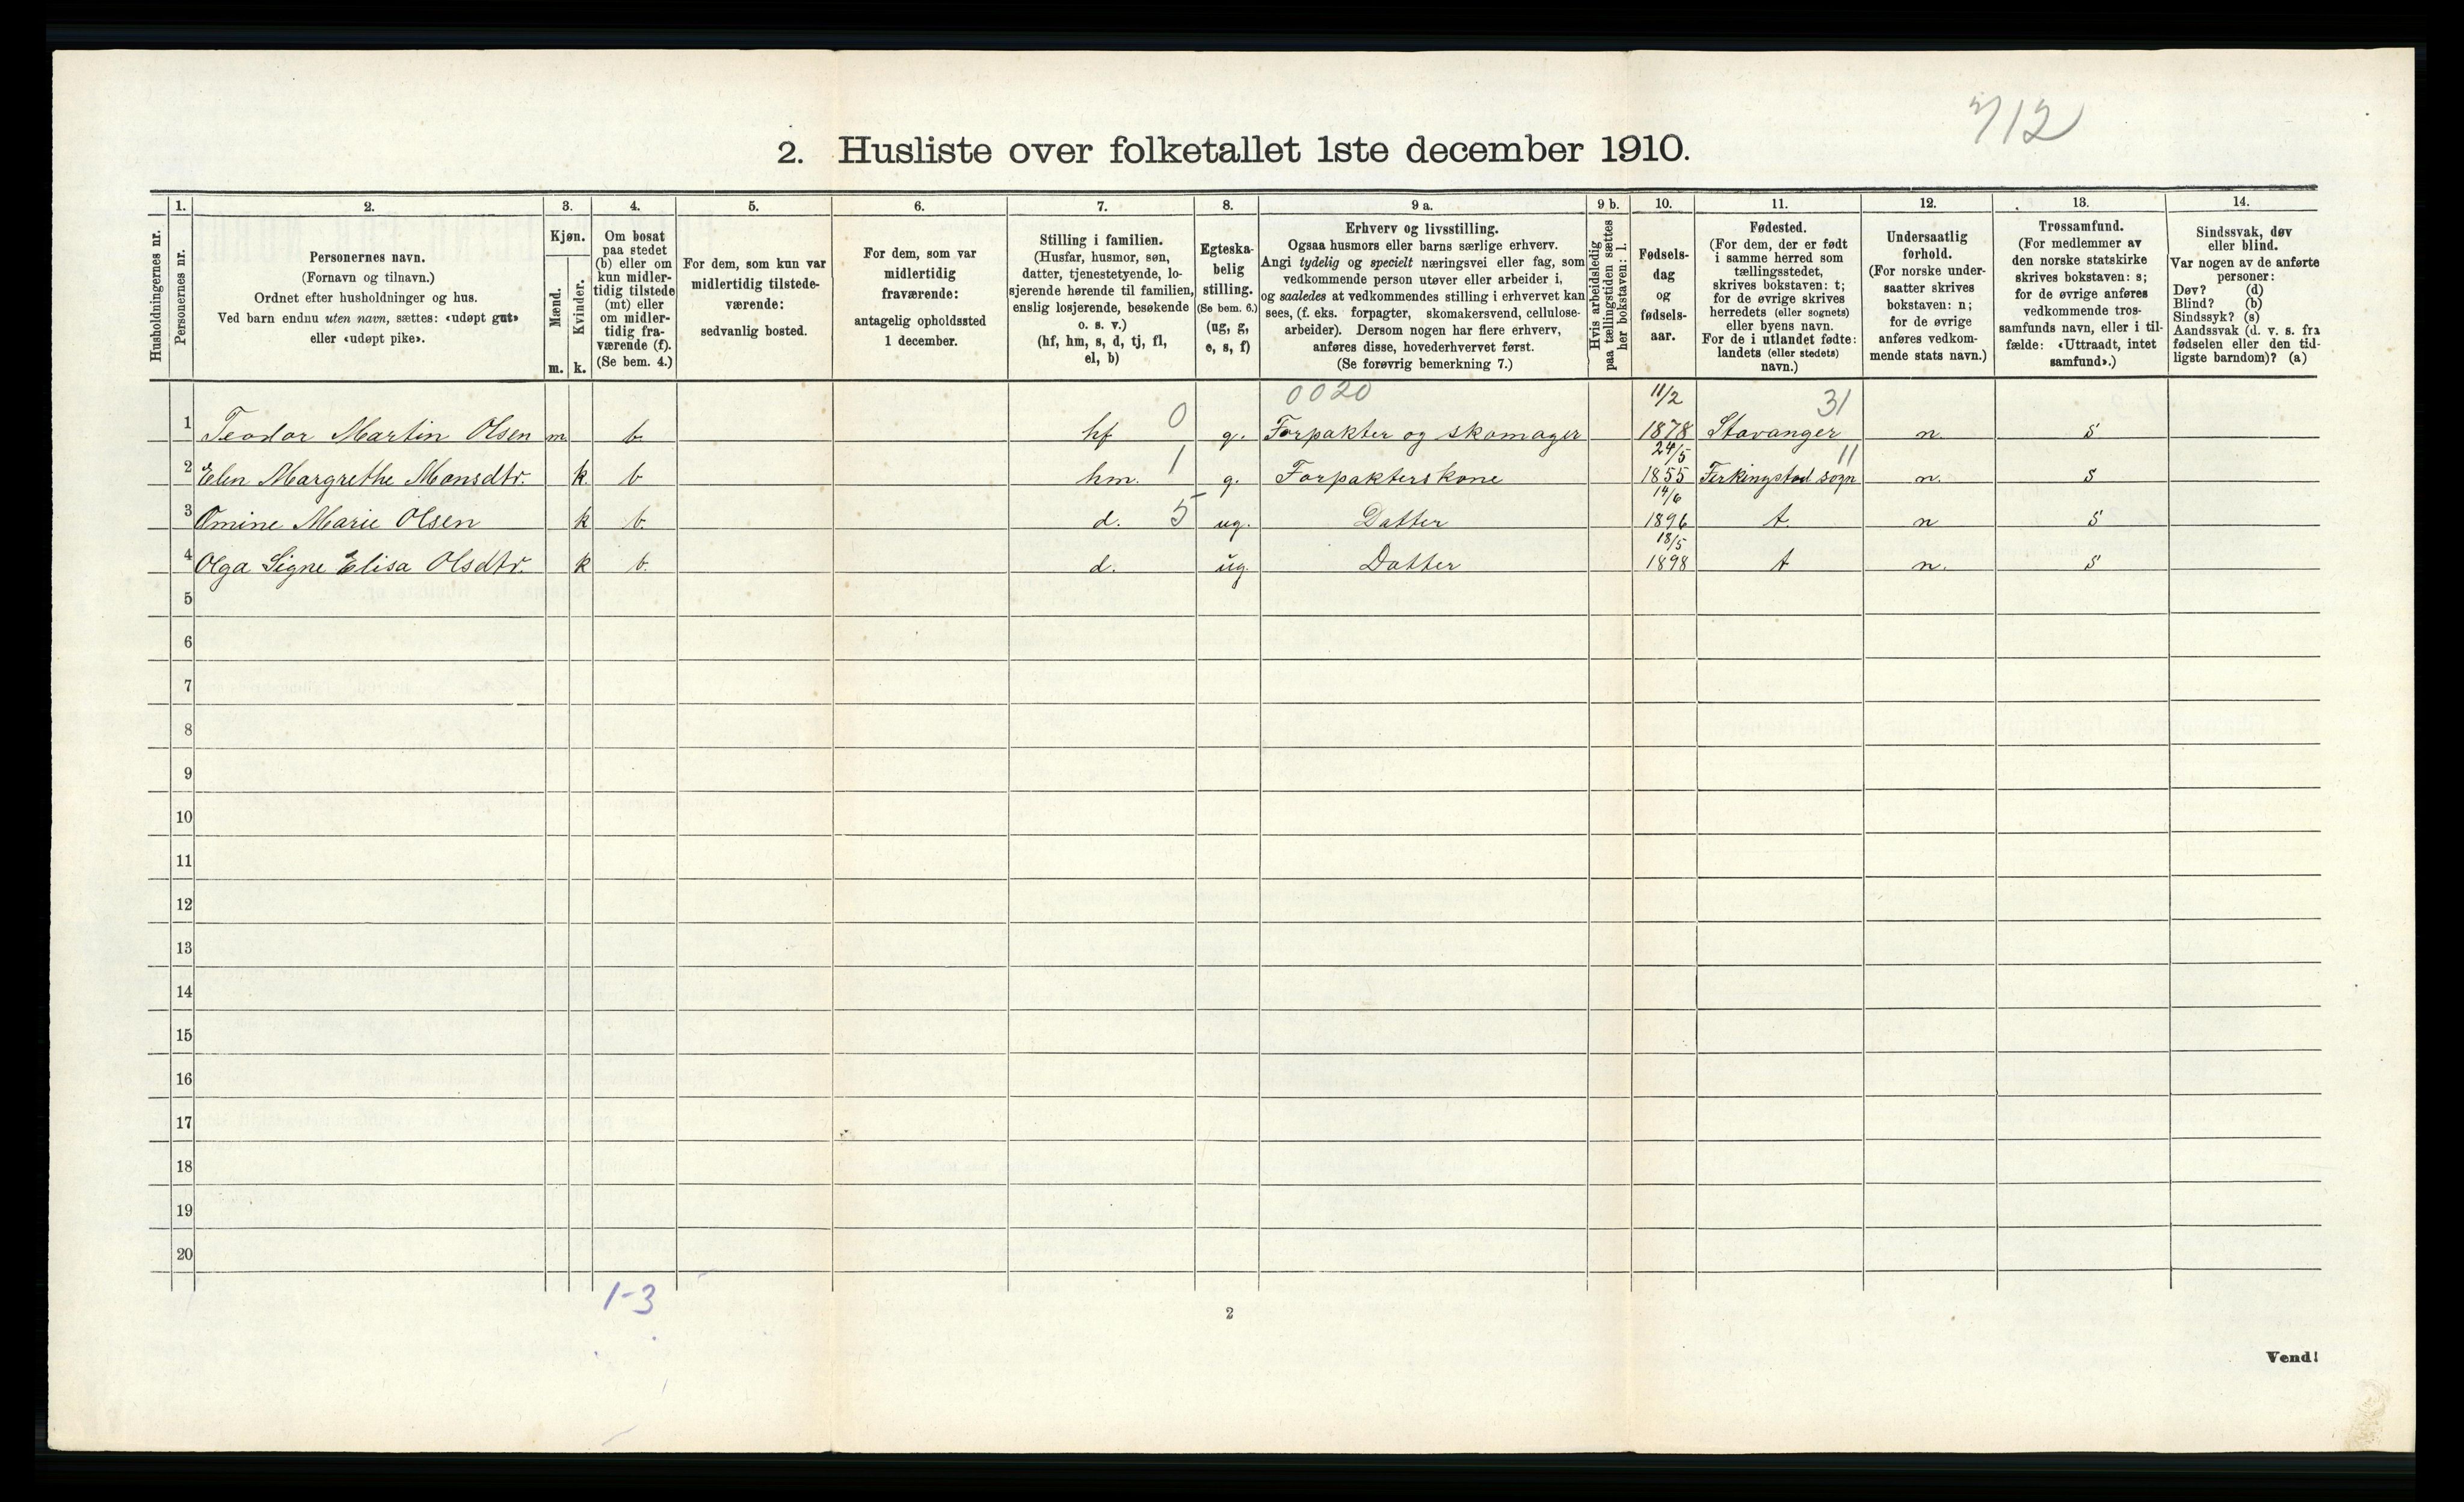 712
2. Husliste over folketallet 1ste december 1910.
1. 2. 3. 4. 5. 6. 7. 8. 9 a. 9 b. 10. 11. 12. 13. 14.
Husholdningernes nr.
Personernes nr.
Personernes navn.
(Fornavn og tilnavn.)
Ordnet efter husholdninger og hus.
Ved barn endnu uten navn, sættes: «udøpt gut»
eller «udøpt pike».
Kjøn.
Mænd.
Kvinder.
m. k.
Om bosat
paa stedet
(b) eller om
kun midler-
tidig tilstede
(mt) eller
om midler-
tidig fra-
værende (f).
(Se bem. 4.)
For dem, som kun var
midlertidig tilstede-
værende:
sedvanlig bosted.
For dem, som var
midlertidig
fraværende:
antagelig opholdssted
1 december.
Stilling i familien.
(Husfar, husmor, søn,
datter, tjenestetyende, lo-
sjerende hørende til familien,
enslig losjerende, besøkende
o. s. v.)
(hf, hm, s, d, tj, fl,
el, b)
Egteska-
belig
stilling.
(Se bem. 6.)
(ug, g,
e, s, f)
Erhverv og livsstilling.
Ogsaa husmors eller barns særlige erhverv.
Angi tydelig og specielt næringsvei eller fag, som
vedkommende person utøver eller arbeider i,
og saaledes at vedkommendes stilling i erhvervet kan
sees, (f. eks. forpagter, skomakersvend, cellulose-
arbeider). Dersom nogen har flere erhverv,
anføres disse, hovederhvervet først.
(Se forøvrig bemerkning 7.)
Hvis arbeidsledig
paa tællingstiden sættes
her bokstaven: l.
Fødsels-
dag
og
fødsels-
aar.
Fødested.
(For dem, der er født
i samme herred som
tællingsstedet,
skrives bokstaven: t;
for de øvrige skrives
herredets (eller sognets)
eller byens navn.
For de i utlandet fødte:
landets (eller stedets)
navn.)
Undersaatlig
forhold.
(For norske under-
saatter skrives
bokstaven: n;
for de øvrige
anføres vedkom-
mende stats navn.)
Trossamfund.
(For medlemmer av
den norske statskirke
skrives bokstaven: s;
for de øvrige anføres
vedkommende tros-
samfunds navn, eller i til-
fælde: «Uttraadt, intet
samfund».)
Sindssvak, døv
eller blind.
Var nogen av de anførte
personer:
Døv? (d)
Blind? (b)
Sindssyk? (s)
Aandssvak (d. v. s. fra
fødselen eller den tid-
ligste barndom)? (a)
0020 11/2 31
1 Teodor Martin Olsen m. b. hf 0 g. Forpakter og skomager 1878 Stavanger n. s
24/5 11
2 Elen Margrethe Monsdtr. k b hm. 1 g. Forpakterskone 1855 Ferkingstad sogn n. s
14/6
3 Omine Marie Olsen k b. d. 5 ug. Datter 1896 t. n s
18/5
4 Olga Signe Elisa Olsdtr. k b. d. ug. Datter 1898 t n. s
5
6
7
8
9
10
11
12
13
14
15
16
17
18
19
20
1-3
2
Vend!